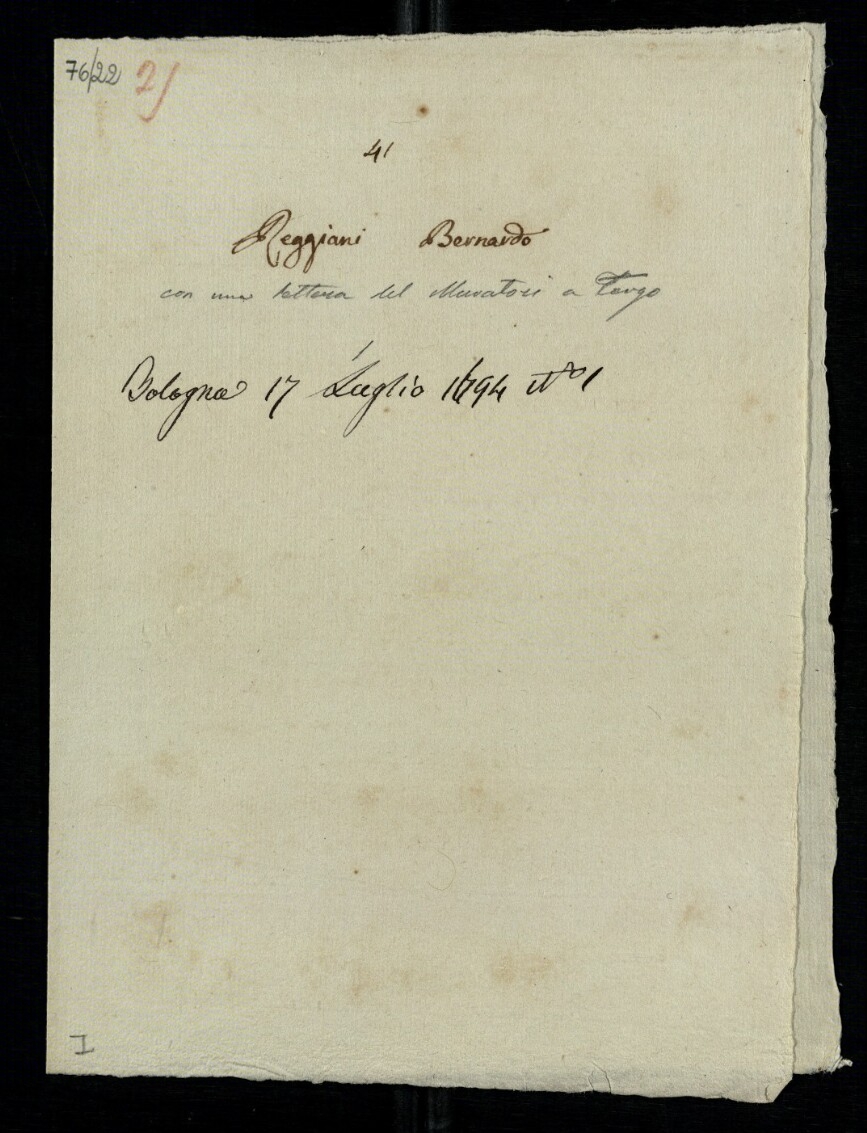 76/22 2)
41
Reggiani Bernardo
con una lettera del Muratori a Tergo
Bologna 17 Luglio 1694 N° 1
I